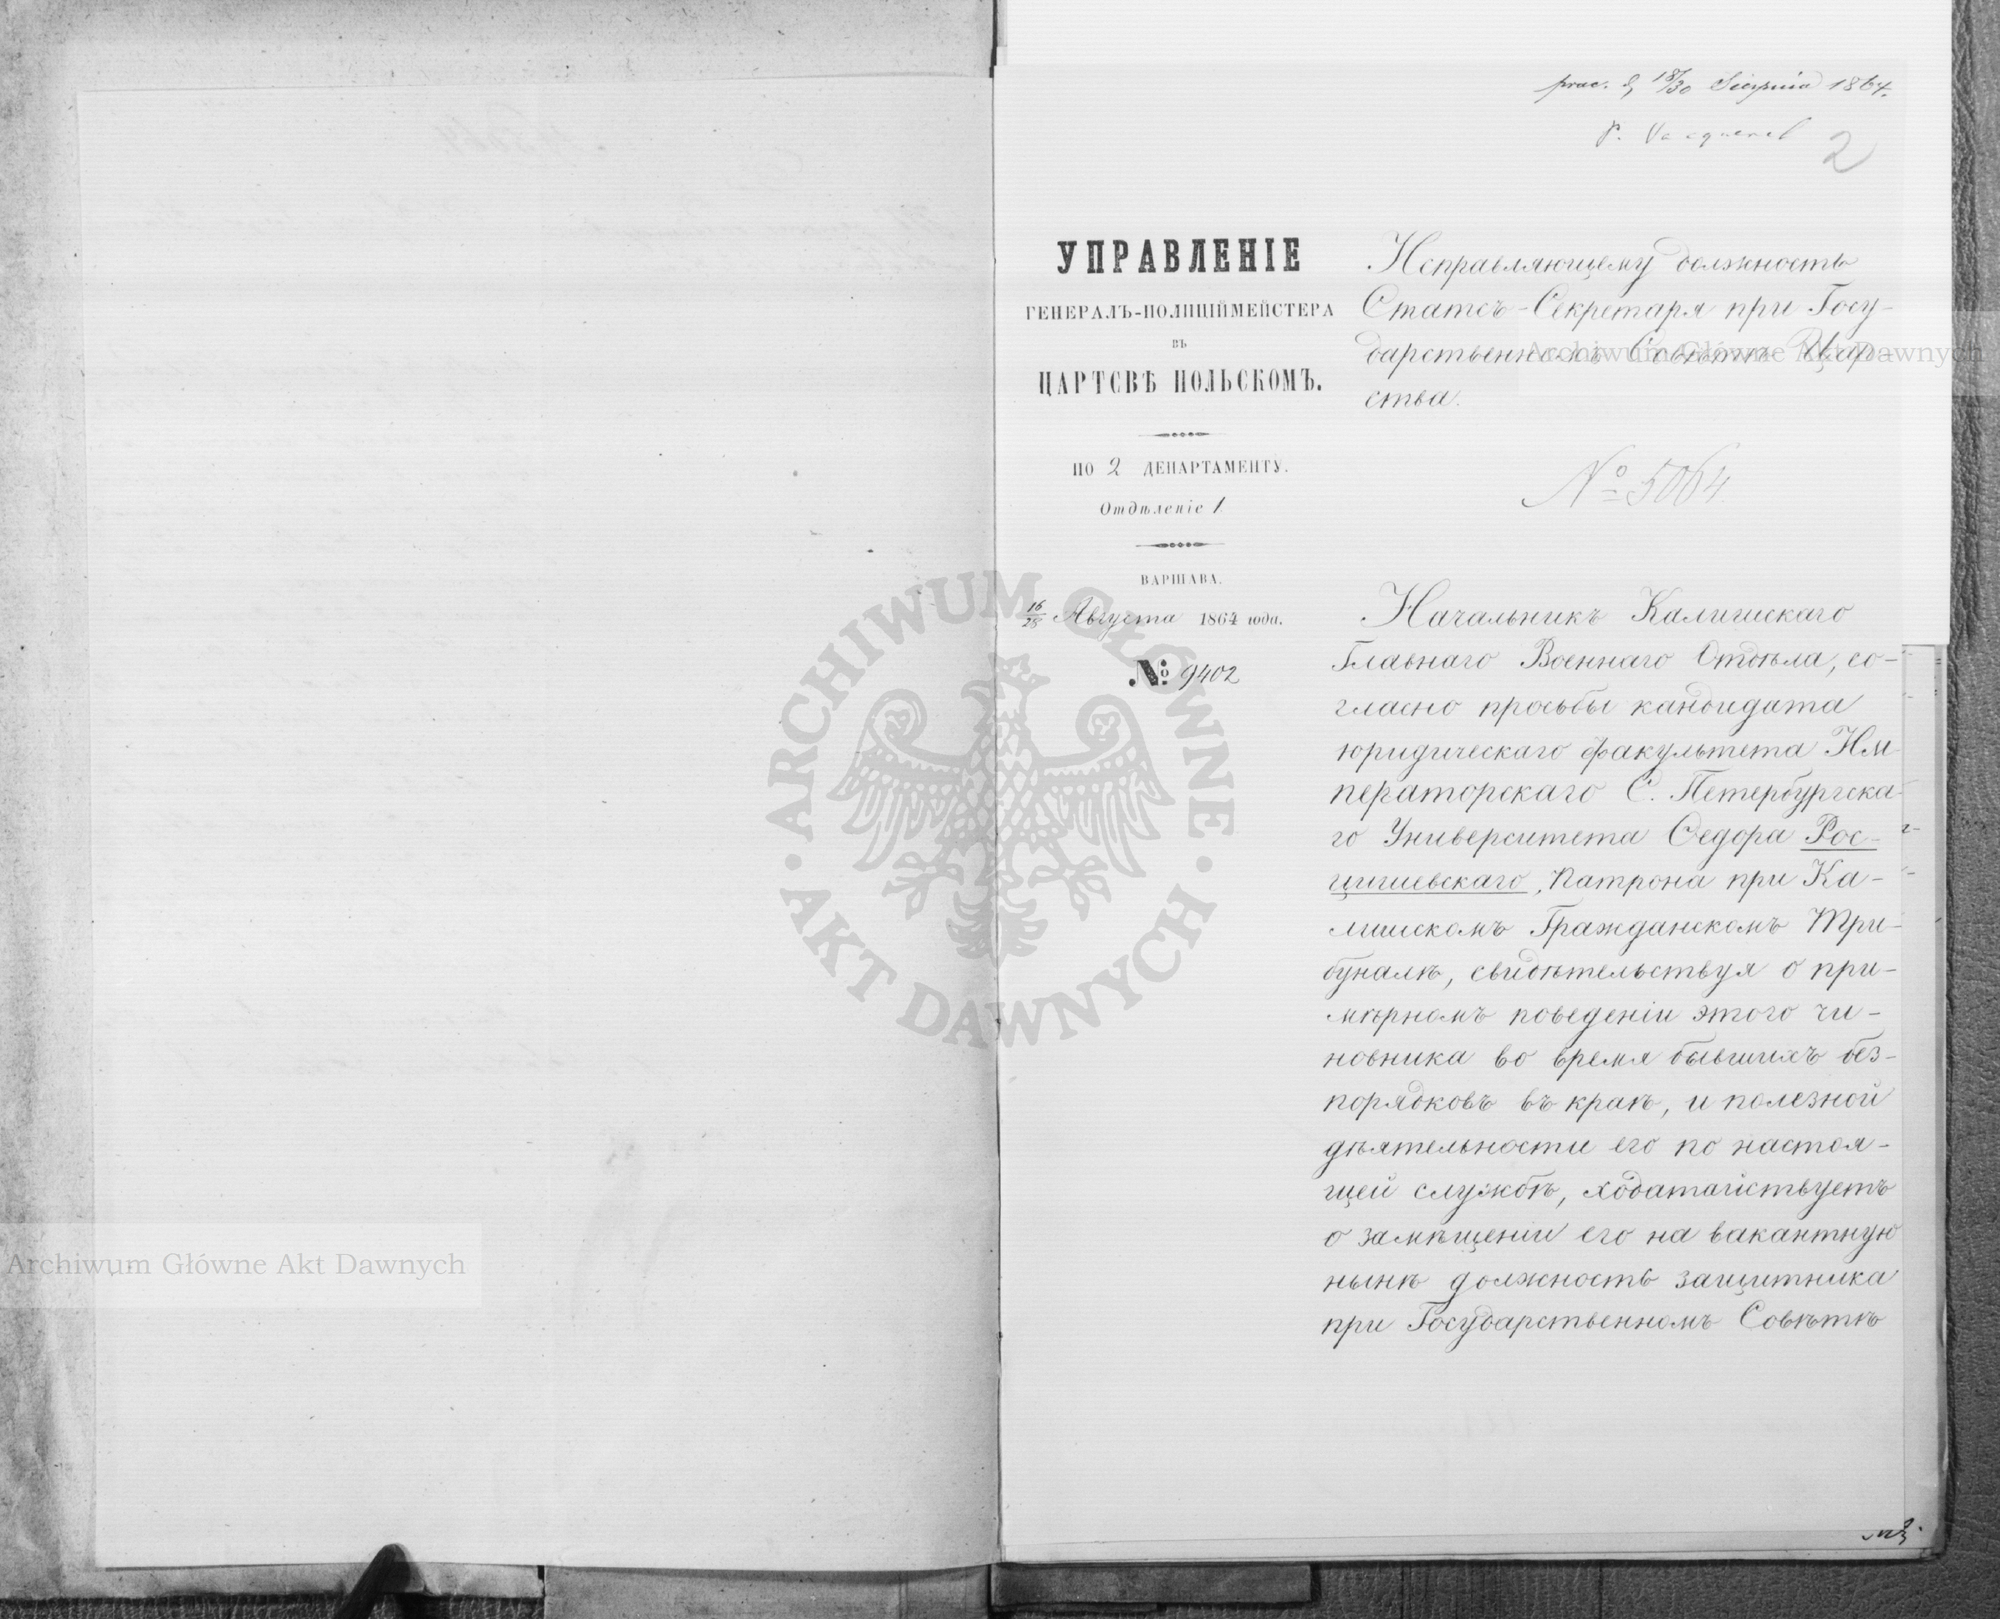 prae. d. 18/30 Sierpnia 1864.
P.
2
УПРАВЛЕНІЕ
ГЕНЕРАЛЪ-ПОЛИЦІЙМЕЙСТЕРА
ВЪ
ЦАРТСВѢ ПОЛЬСКОМЪ.
ПО 2 ДЕПАРТАМЕНТУ.
Отдѣленіе 1
ВАРШАВА.
16/28 Августа 1864 года.
№ 9402
Исправляющему должность
Статсъ-Секретаря при Госу-
дарственномъ Совѣтѣ Цар-
ства.
№ 5064.
Начальникъ Калишскаго
Главнаго Военнаго Отдѣла, со-
гласно просьбы кандидата
юридическаго факультета Им
ператорскаго С. Петербургска-
го Университета Ѳедора Рос-
цишевскаго, Патрона при Ка-
лишскомъ Гражданскомъ Три-
буналѣ, свидѣтельствуя о при-
мѣрномъ поведеніи этого чи-
новника во время бывшихъ без-
порядковъ въ краѣ, и полезной
дѣятельности его по настоя-
щей службѣ, ходатайствуетъ
о замѣщеніи его на вакантную
нынѣ должность защитника
при Государственномъ Совѣтѣ
Archiwum Główne Akt Dawnych
Archiwum Główne Akt Dawnych
ARCHIWUM GŁÓWNE · AKT DAWNYCH ·